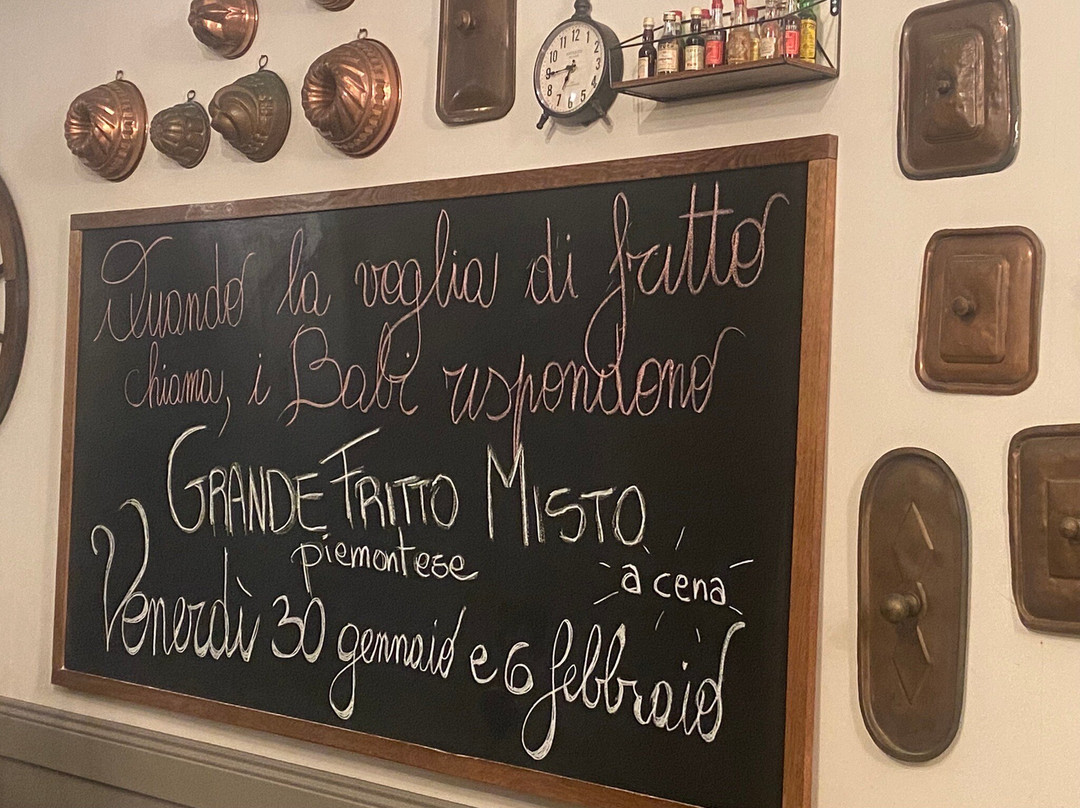 Quando la voglia di fritto
chiama, i Babi rispondono
GRANDE FRITTO MISTO
piemontese
a cena
Venerdì 30 gennaio e 6 febbraio